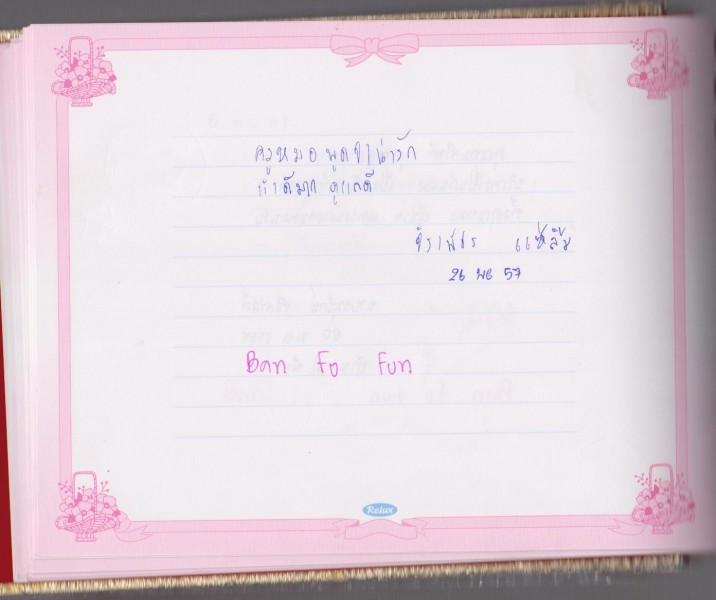 ครูหมอ พูดจาน่ารัก
ทำดีมาก ดูแลดี
แซ่ลิ้ม
26 พย 57
Ban Fo Fun
Relux